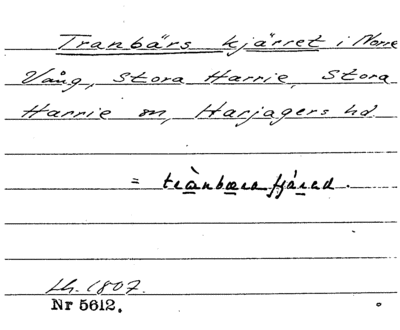 Tranbärs kjärret i Norre
Vång, Stora Harrie, Stora
Harrie sn, Harjagers hd.
=
Lh. 1807.
Nr 5612.